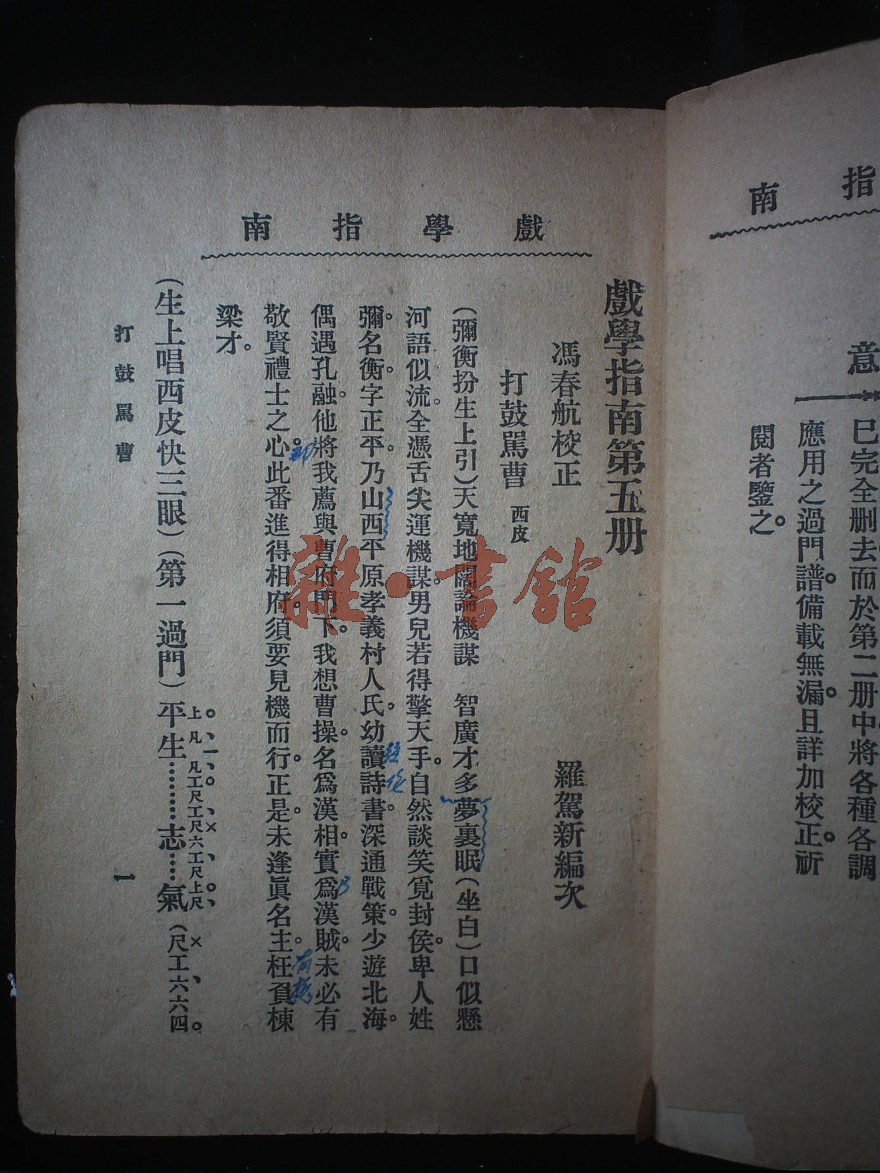 指南
意
已完全删去而於第二册中將各種各調
應用之過門譜備載無漏。且詳加校正。祈
閱者鑒之。
戲學指南
戲學指南第五册
馮春航校正 羅駕新編次
打鼓駡曹 西皮
(彌衡扮生上引)天寬地闊論機謀 智廣才多夢裏眠(坐白)口似懸
河語似流。全憑舌尖運機謀。男兒若得擎天手。自然談笑覓封侯。卑人姓
彌名衡字正平。乃山西平原孝義村人氏。幼讀詩書。深通戰策。少遊北海。
偶遇孔融。他將我薦與曹府門下。我想曹操。名爲漢相。實爲漢賊。未必有
敬賢禮士之心。此番進得相府。須要見機而行。正是未逢眞名主。枉負棟
梁才。
(生上唱西皮快三眼)(第一過門)平生………志……氣(尺工六六四
上凡 凡工尺工尺六工尺上尺
打鼓駡曹
一
雜·書館